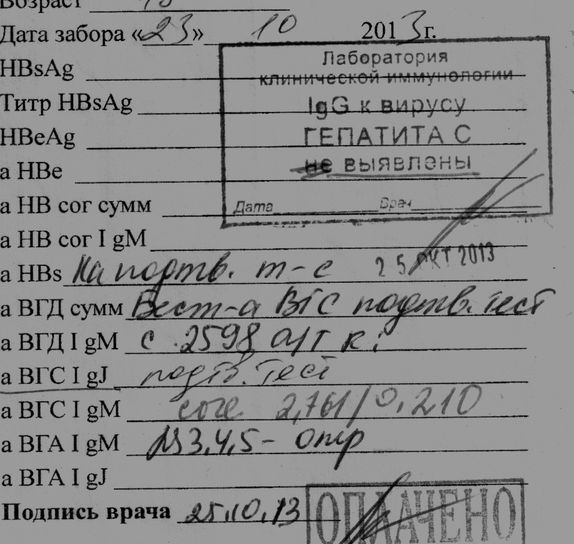 Возраст
Дата забора «23» 10 2013г.
HBsAg
Титр HBsAg
HBeAg
а HBe
а HB cor сумм
а HB cor I gM
а HBs На подтв. т-с
а ВГД сумм Вест-а ВГС подтв. тест
а ВГД I gM с 2598
а ВГС I gJ подтв. тест
а ВГС I gM core 2,761/0,210
а ВГА I gM NS 3,4,5 - отр
а ВГА I gJ
Подпись врача 25.10.13
Лаборатория
клинической иммунологии
IgG к вирусу
ГЕПАТИТА С
не выявлены
Дата Врач
25 ОКТ 2013
ОПЛАЧЕНО